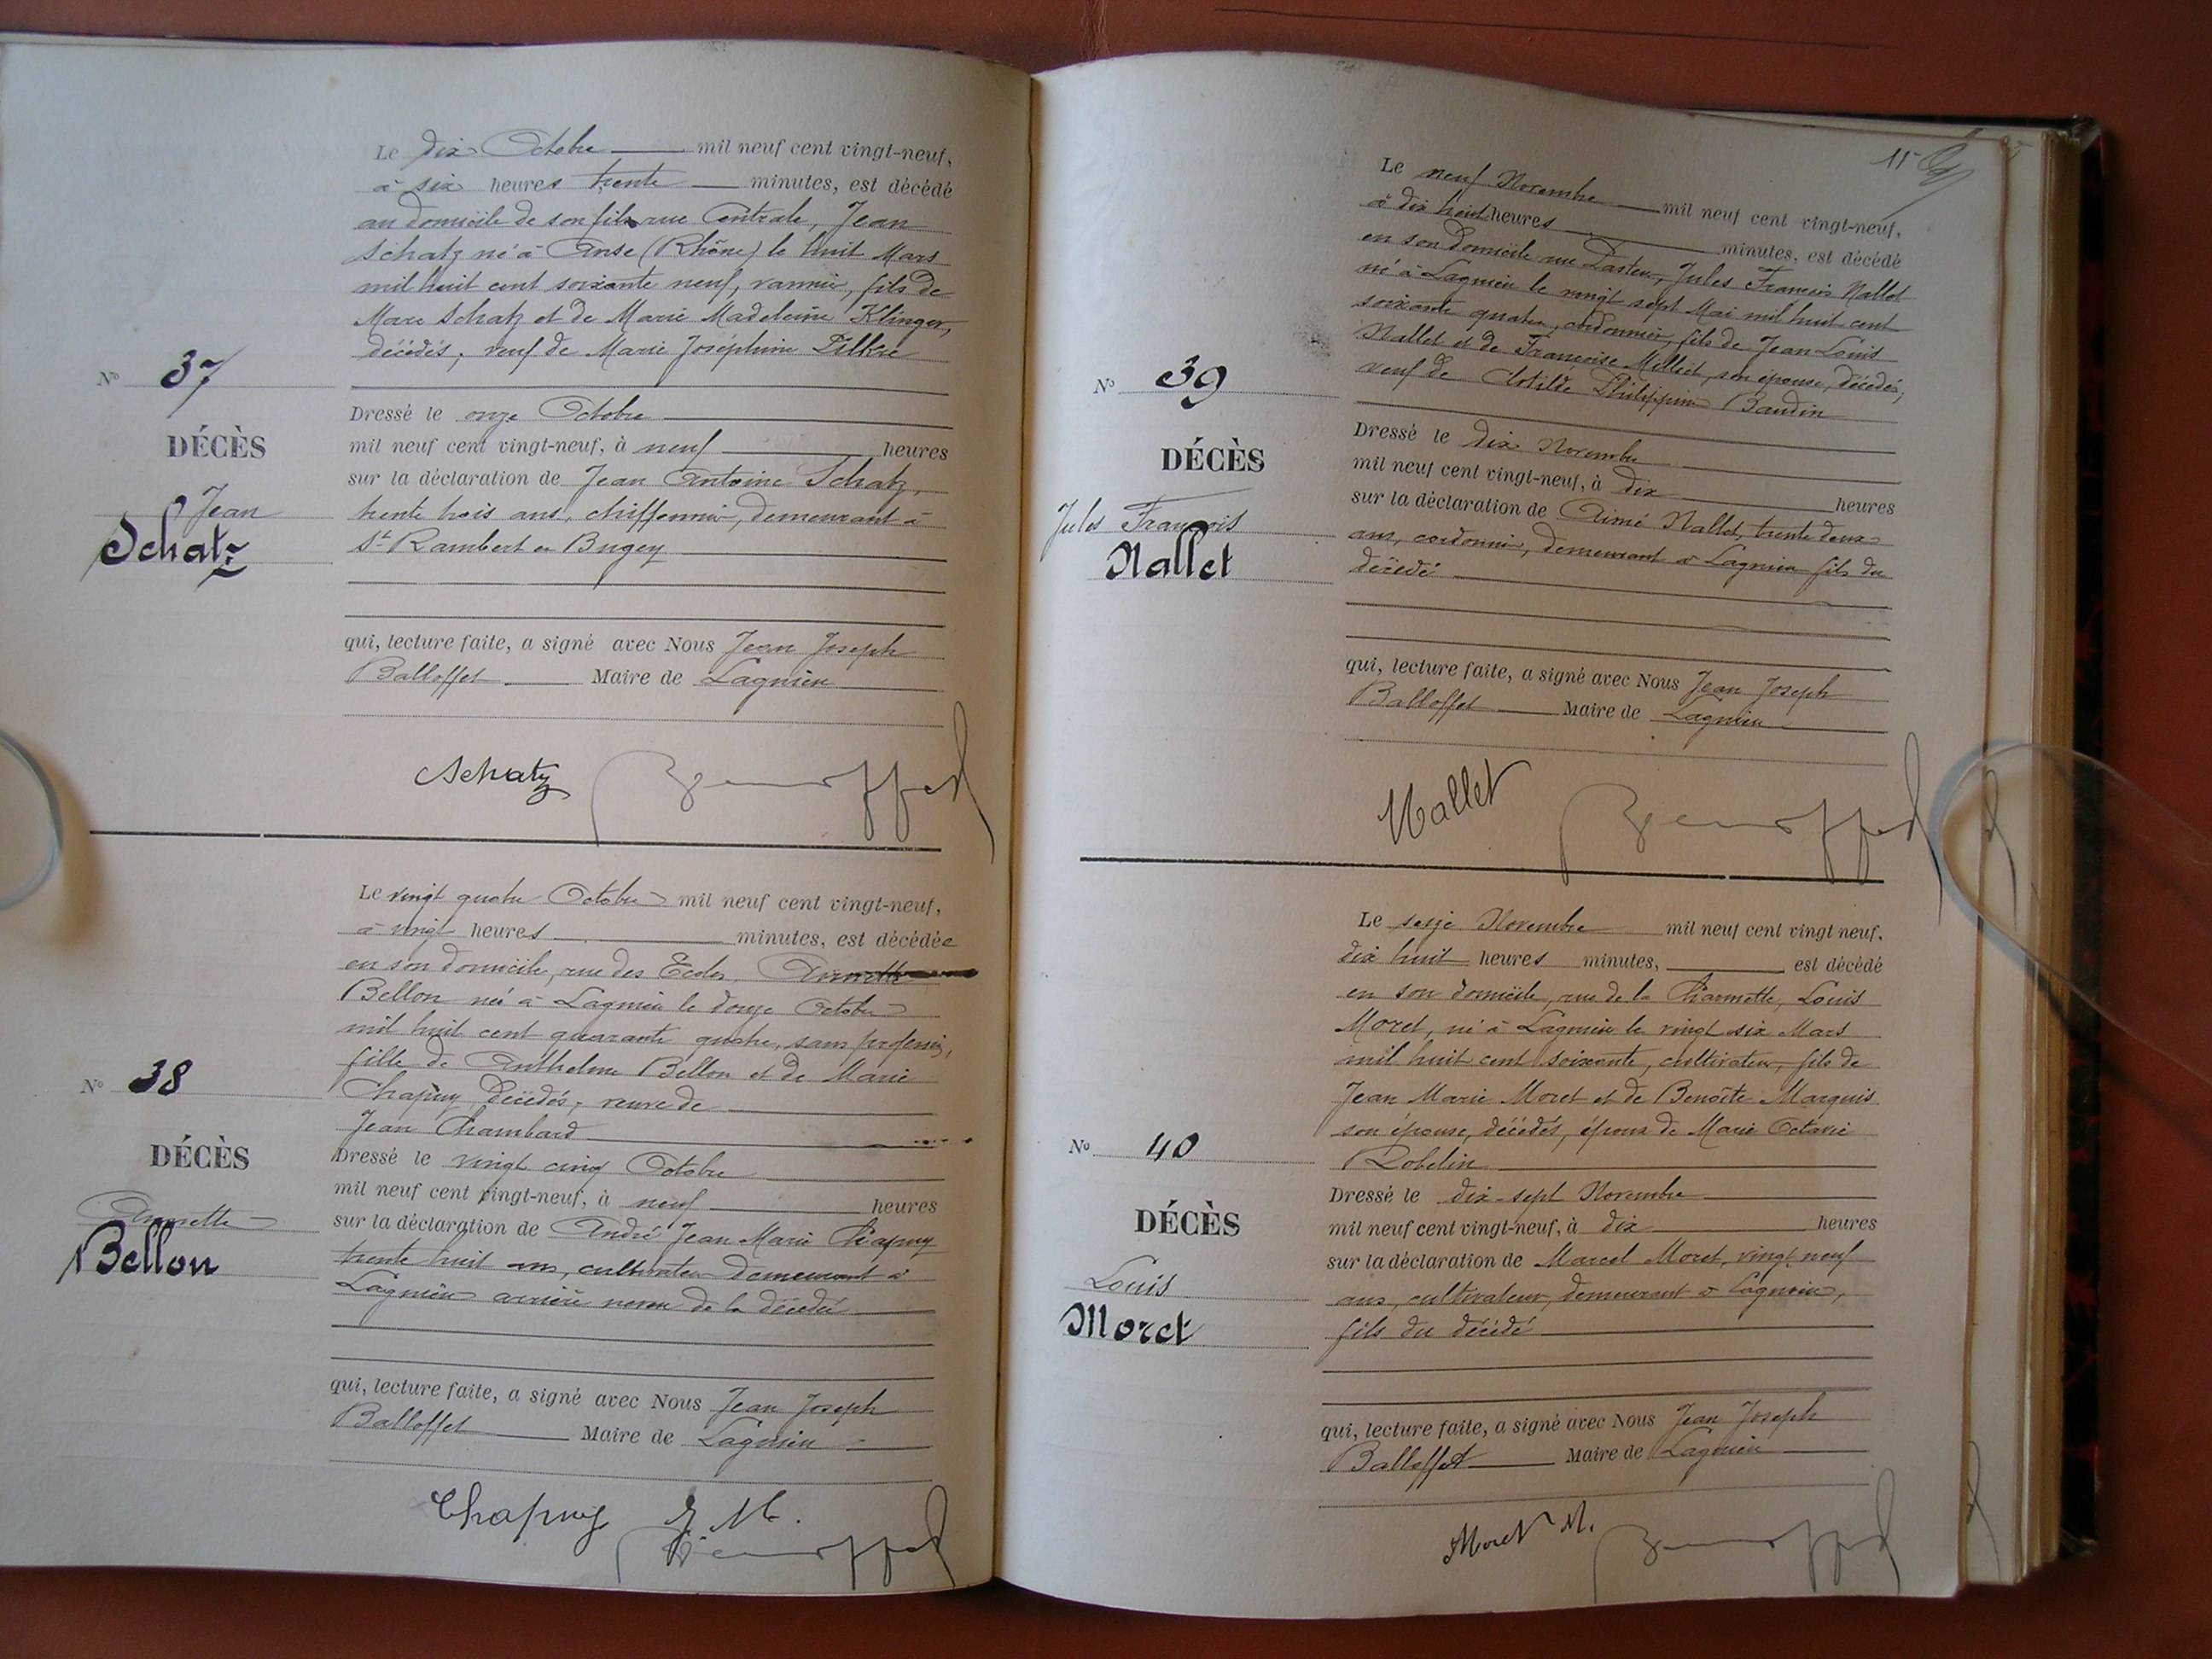 Le dix Octobre mil neuf cent vingt-neuf,
à six heures trente minutes, est décédé
au domicile de son fils rue Centrale, Jean
Schatz né à Anse (Rhône) le huit Mars
mil huit cent soixante neuf, vannier, fils de
Marc Schatz et de Marie Madeleine Klinger,
décédés, veuf de Marie Joséphine
N° 37
Dressé le onze Octobre
mil neuf cent vingt-neuf, à neuf heures
DÉCÈS
sur la déclaration de Jean Antoine Schatz,
Jean
trente trois ans, chiffonnier, demeurant à
Schatz
St Rambert en Bugey
qui, lecture faite, a signé avec Nous Jean Joseph
Balloffet Maire de Lagnieu
Schatz
Le vingt quatre Octobre mil neuf cent vingt-neuf,
à vingt heures minutes, est décédée
en son domicile, rue des Ecoles, Annette
Bellon née à Lagnieu le douze Octobre
mil huit cent quarante quatre, sans profession,
fille de Anthelme Bellon et de Marie
Chapuy décédés, veuve de
Jean Chambard
N° 38
DÉCÈS
Dressé le vingt cinq Octobre
mil neuf cent vingt-neuf, à neuf heures
Annette
sur la déclaration de André Jean Marie Chapuy
Bellon
trente huit ans, cultivateur demeurant à
Lagnieu arrière neveu de la décédée
qui, lecture faite, a signé avec Nous Jean Joseph
Balloffet Maire de Lagnieu
Chapuy J. M.
11
Le neuf Novembre mil neuf cent vingt-neuf,
à dix huit heures minutes, est décédé
en son domicile rue Pasteur, Jules François Nallet
né à Lagnieu le vingt sept Mai mil huit cent
soixante quatre, cordonnier, fils de Jean Louis
Nallet et de Françoise Milliet, son épouse, décédés,
veuf de Clotilde Philippine Baudin
N° 39
Dressé le dix Novembre
DÉCÈS
mil neuf cent vingt-neuf, à dix heures
Jules François
sur la déclaration de Aimé Nallet, trente deux
Nallet
ans, cordonnier, demeurant à Lagnieu fils du
décédé
qui, lecture faite, a signé avec Nous Jean Joseph
Balloffet Maire de Lagnieu
Nallet
Le seize Novembre mil neuf cent vingt neuf,
dix huit heures minutes, est décédé
en son domicile, rue de la Charmette, Louis
Moret, né à Lagnieu le vingt six Mars
mil huit cent soixante, cultivateur, fils de
Jean Marie Moret et de Benoîte Marquis
son épouse, décédés, époux de Marie Octavie
N° 40
Robelin
Dressé le dix-sept Novembre
DÉCÈS
mil neuf cent vingt-neuf, à dix heures
sur la déclaration de Marcel Moret, vingt neuf
Louis
ans, cultivateur, demeurant à Lagnieu,
Moret
fils du décédé
qui, lecture faite, a signé avec Nous Jean Joseph
Balloffet Maire de Lagnieu
Moret M.